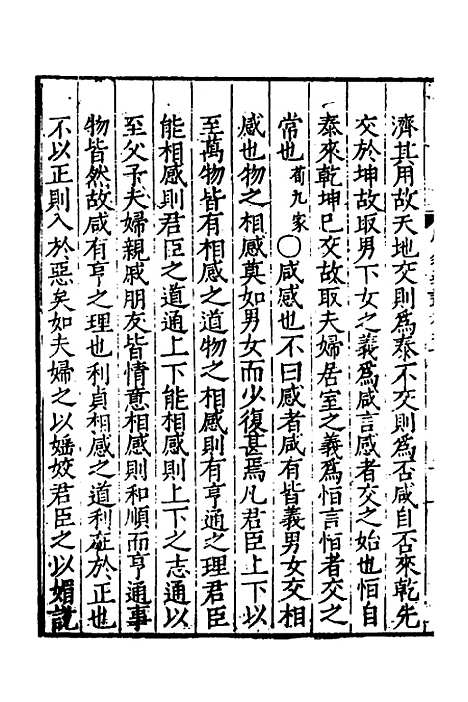 濟其用故天地交則爲泰不交則爲否咸自否來乾先
交於坤故取男下女之義爲咸言感者交之始也恒自
泰來乾坤已交故取夫婦居室之義爲恒言恒者交之
常也荀九家○咸感也不曰感者咸有皆義男女交相
感也物之相感莫如男女而少復甚焉凡君臣上下以
至萬物皆有相感之道物之相感則有亨通之理君臣
能相感則君臣之道通上下能相感則上下之志通以
至父子夫婦親戚朋友皆情意相感則和順而亨通事
物皆然故咸有亨之理也利貞相感之道利在於正也
不以正則入於惡矣如夫婦之以婬姣君臣之以媚說